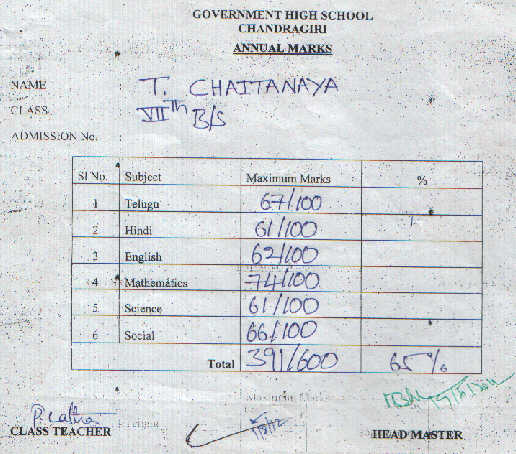 GOVERNMENT HIGH SCHOOL
CHANDRAGIRI
ANNUAL MARKS
NAME : T. CHAITANAYA
CLASS : VIITH B/S
ADMISSION No. :
Sl No. Subject Maximum Marks %
1 Telugu 67/100
2 Hindi 61/100
3 English 62/100
4 Mathematics 74/100
5 Science 61/100
6 Social 66/100
Total 391/600 65%
CLASS TEACHER HEAD MASTER